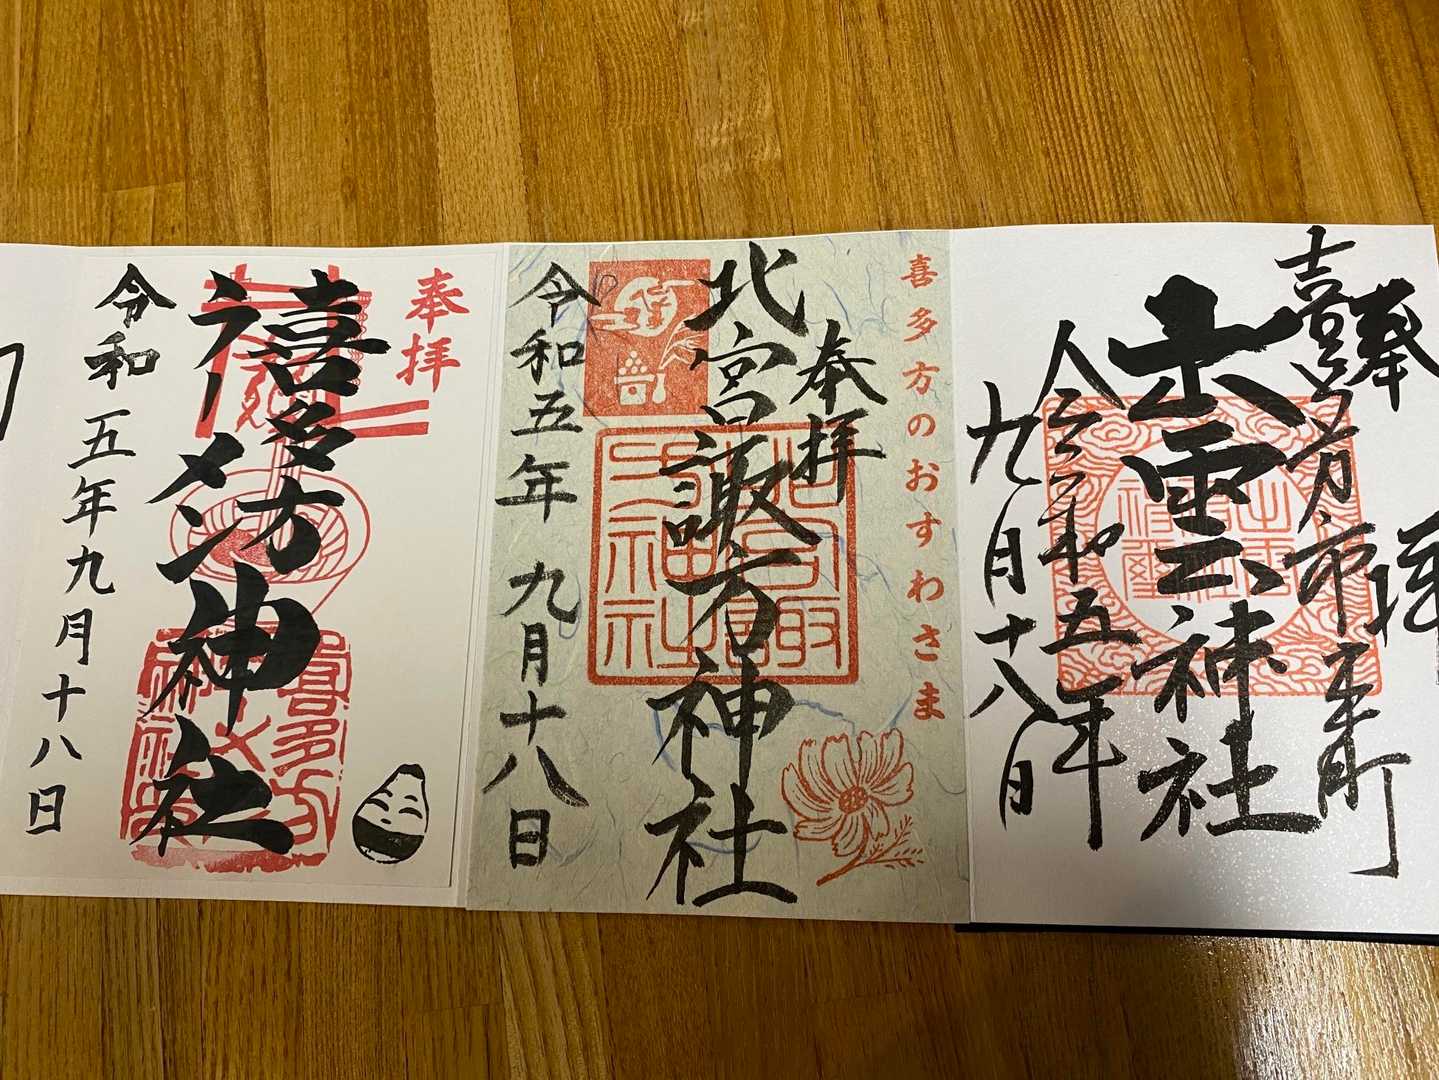 奉拝
喜多方市本町
出雲神社
令和五年
九月十八日
喜多方のおすわさま
奉拝
北宮諏方神社
令和五年 九月十八日
奉拝
喜多方
ラーメン神社
令和 五年九月十八日